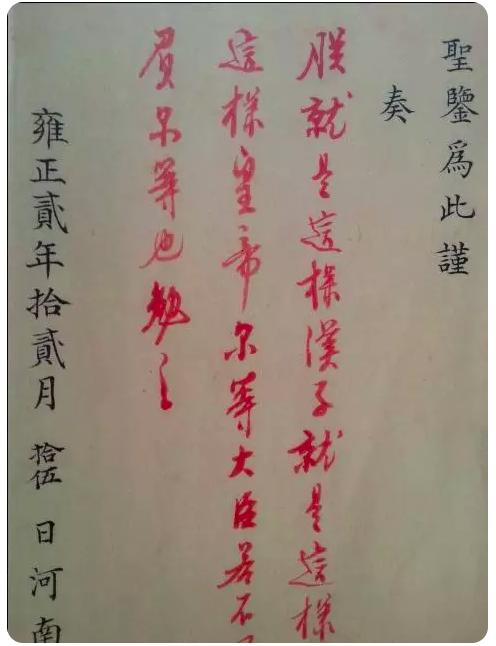 聖鑒爲此謹
奏
朕就是這樣漢子就是這樣
這樣皇帝尔等大臣若不
負尔等也勉之
雍正貳年拾貳月拾伍日河南